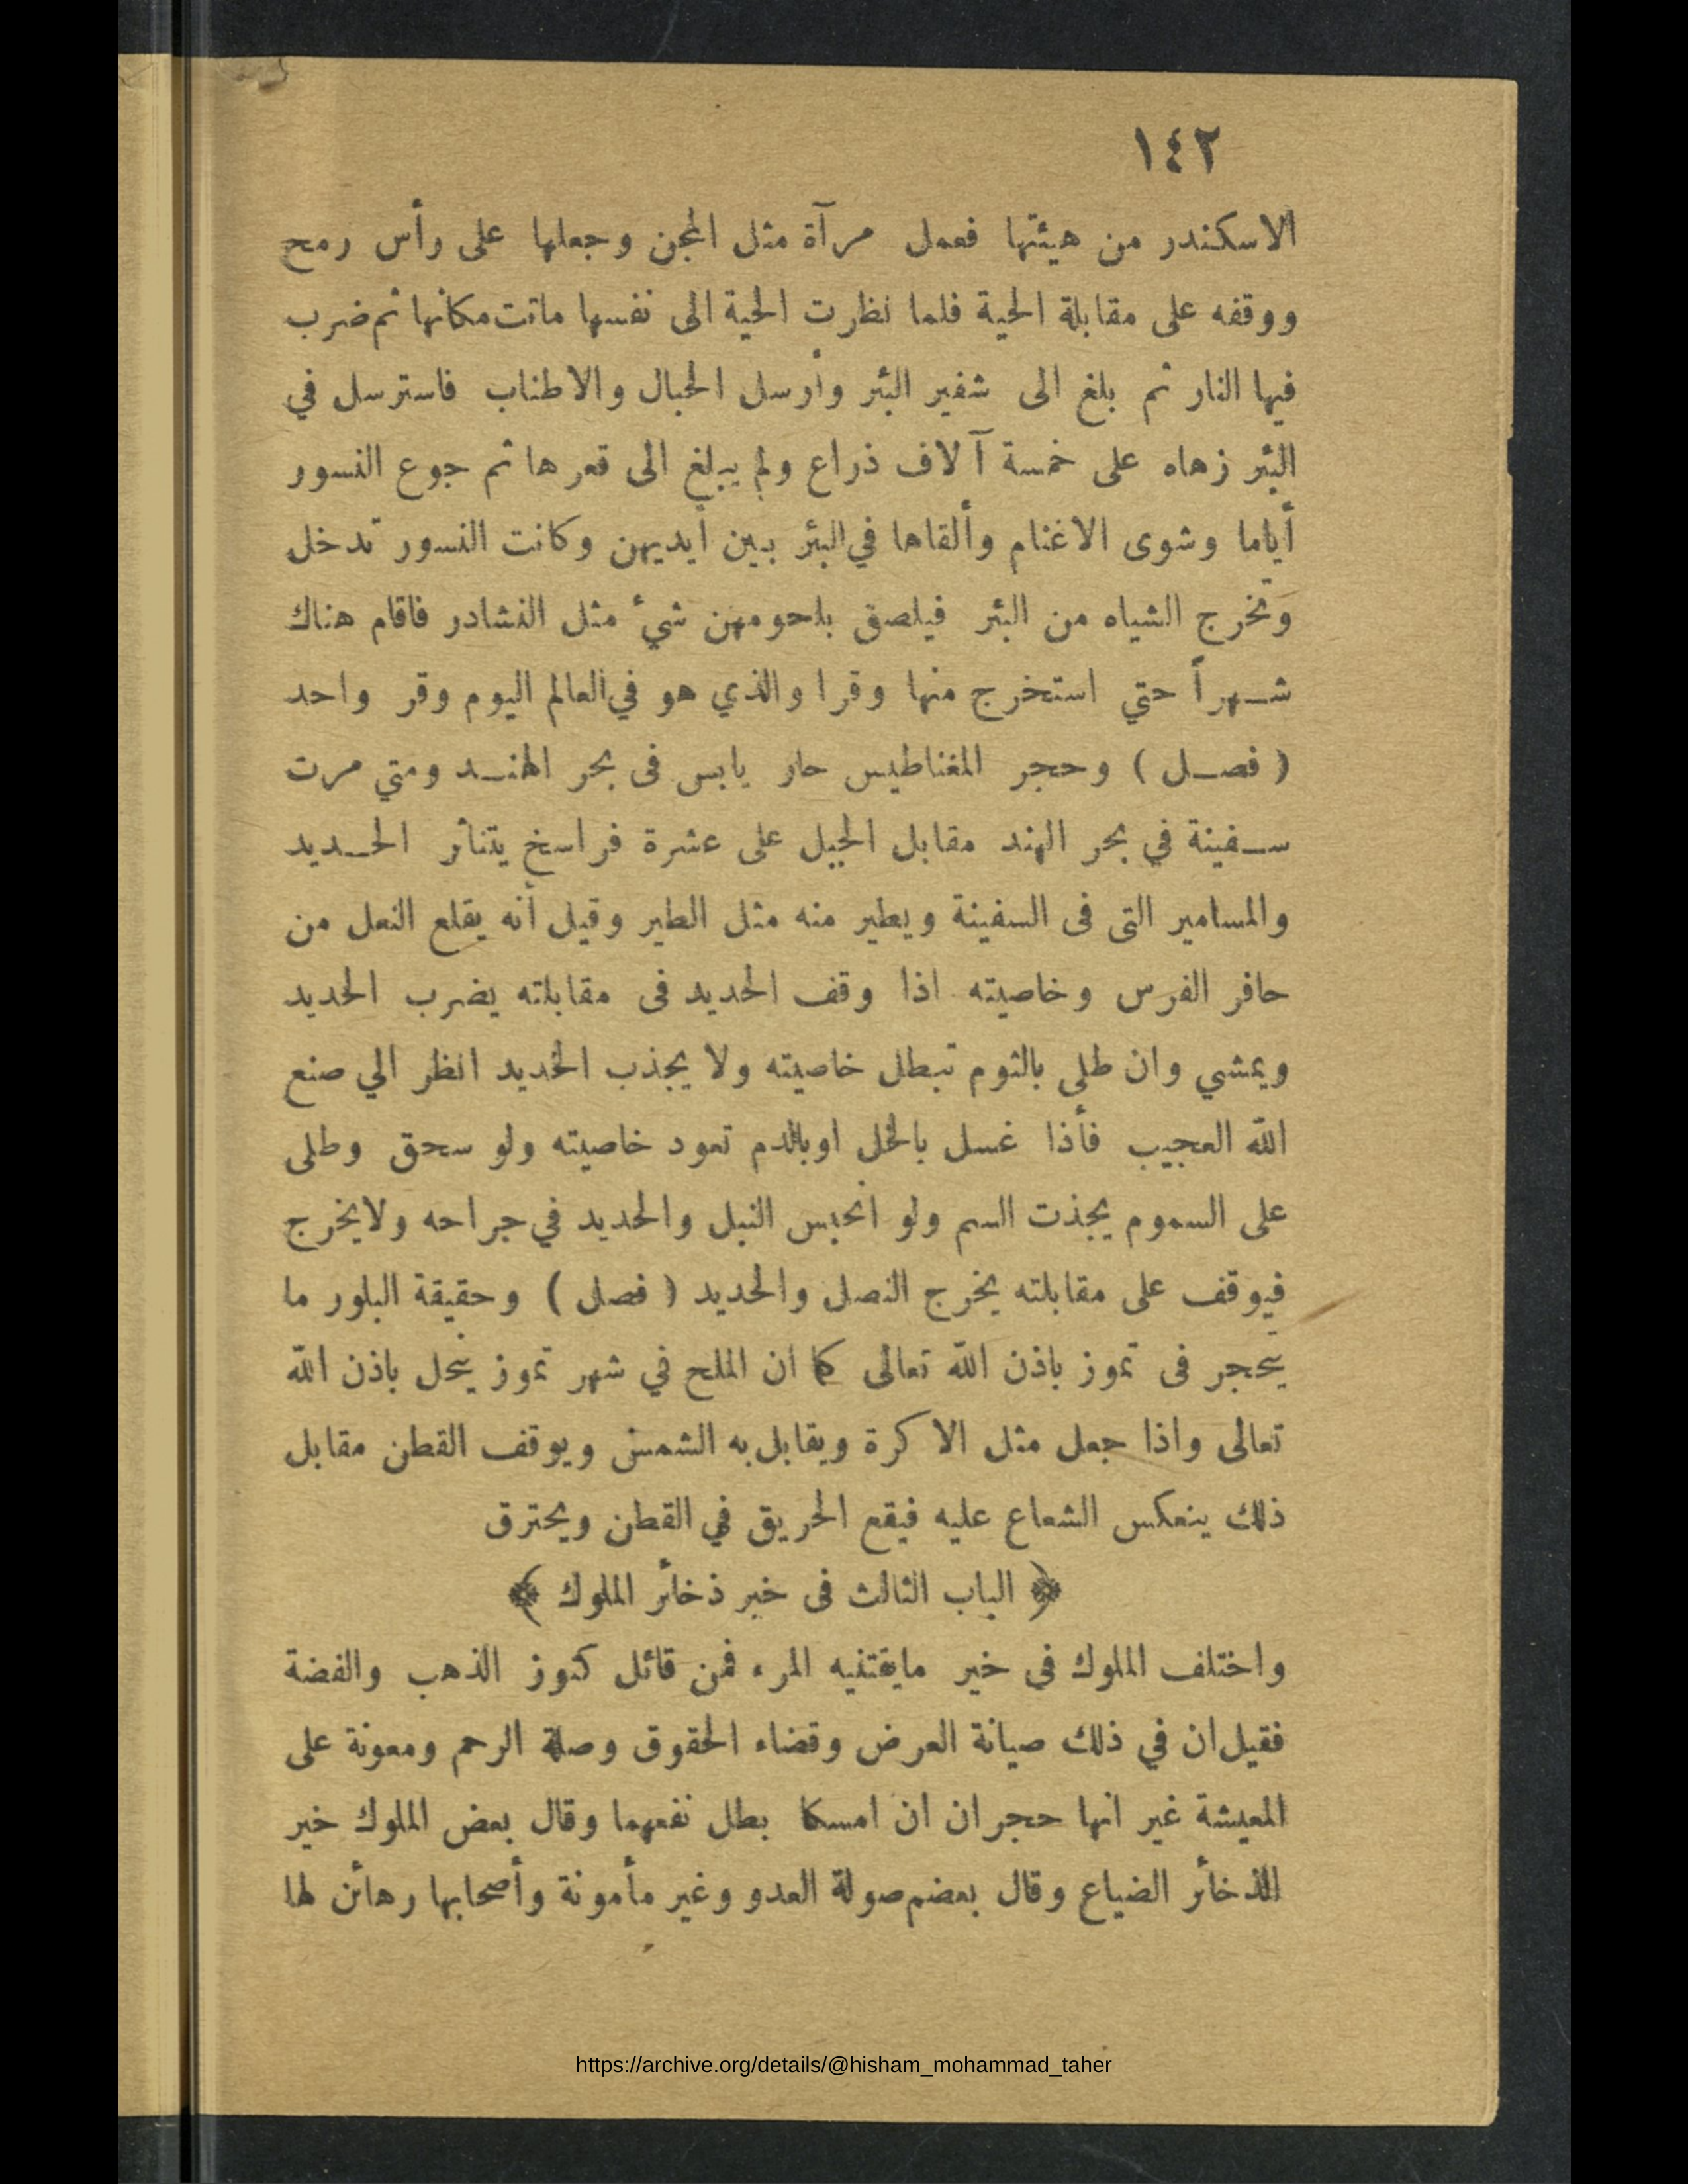 ١٤٢
الاسكندر من هيئتها فعمل مرآة مثل المجن وجعلها على رأس رمح
ووقفه على مقابلة الحية فلما نظرت الحية الى نفسها ماتت مكانها ثم ضرب
فيها النار ثم بلغ الى شفير البئر وأرسل الحبال والاطناب فاسترسل في
البئر زهاه على خمسة آلاف ذراع ولم يبلغ الى قعرها ثم جوع النسور
أياما وشوى الاغنام وألقاها في البئر بين أيديهن وكانت النسور تدخل
وتخرج الشياه من البئر فيلصق بلحومهن شيء مثل النشادر فاقام هناك
شهراً حتي استخرج منها وقرا والذي هو في العالم اليوم وقر واحد
( فصل ) وحجر المغناطيس حار يابس فى بحر الهند ومتي مرت
سفينة في بحر الهند مقابل الجبل على عشرة فراسخ يتناثر الحديد
والمسامير التى فى السفينة ويطير منه مثل الطير وقيل أنه يقلع النعل من
حافر الفرس وخاصيته اذا وقف الحديد فى مقابلته يضرب الحديد
ويمشي وان طلى بالثوم تبطل خاصيته ولا يجذب الحديد انظر الي صنع
الله العجيب فأذا غسل بالخل اوبالدم تعود خاصيته ولو سحق وطلى
على السموم يجذت السم ولو انحبس النبل والحديد في جراحه ولا يخرج
فيوقف على مقابلته يخرج النصل والحديد ( فصل ) وحقيقة البلور ما
يتحجر فى تموز باذن الله تعالى كما ان الملح في شهر تموز ينحل باذن الله
تعالى واذا جعل مثل الاكرة ويقابل به الشمس ويوقف القطن مقابل
ذلك ينعكس الشعاع عليه فيقع الحريق في القطن ويحترق
﴿ الباب الثالث فى خبر ذخائر الملوك ﴾
واختلف الملوك فى خير مايقتنيه المرء فمن قائل كنوز الذهب والفضة
فقيل ان في ذلك صيانة العرض وقضاء الحقوق وصلة الرحم ومعونة على
المعيشة غير انها حجران ان امسكا بطل نفعهما وقال بعض الملوك خير
الذخائر الضياع وقال بعضم صولة العدو وغير مأمونة وأصحابها رهائن لها
https://archive.org/details/@hisham_mohammad_taher